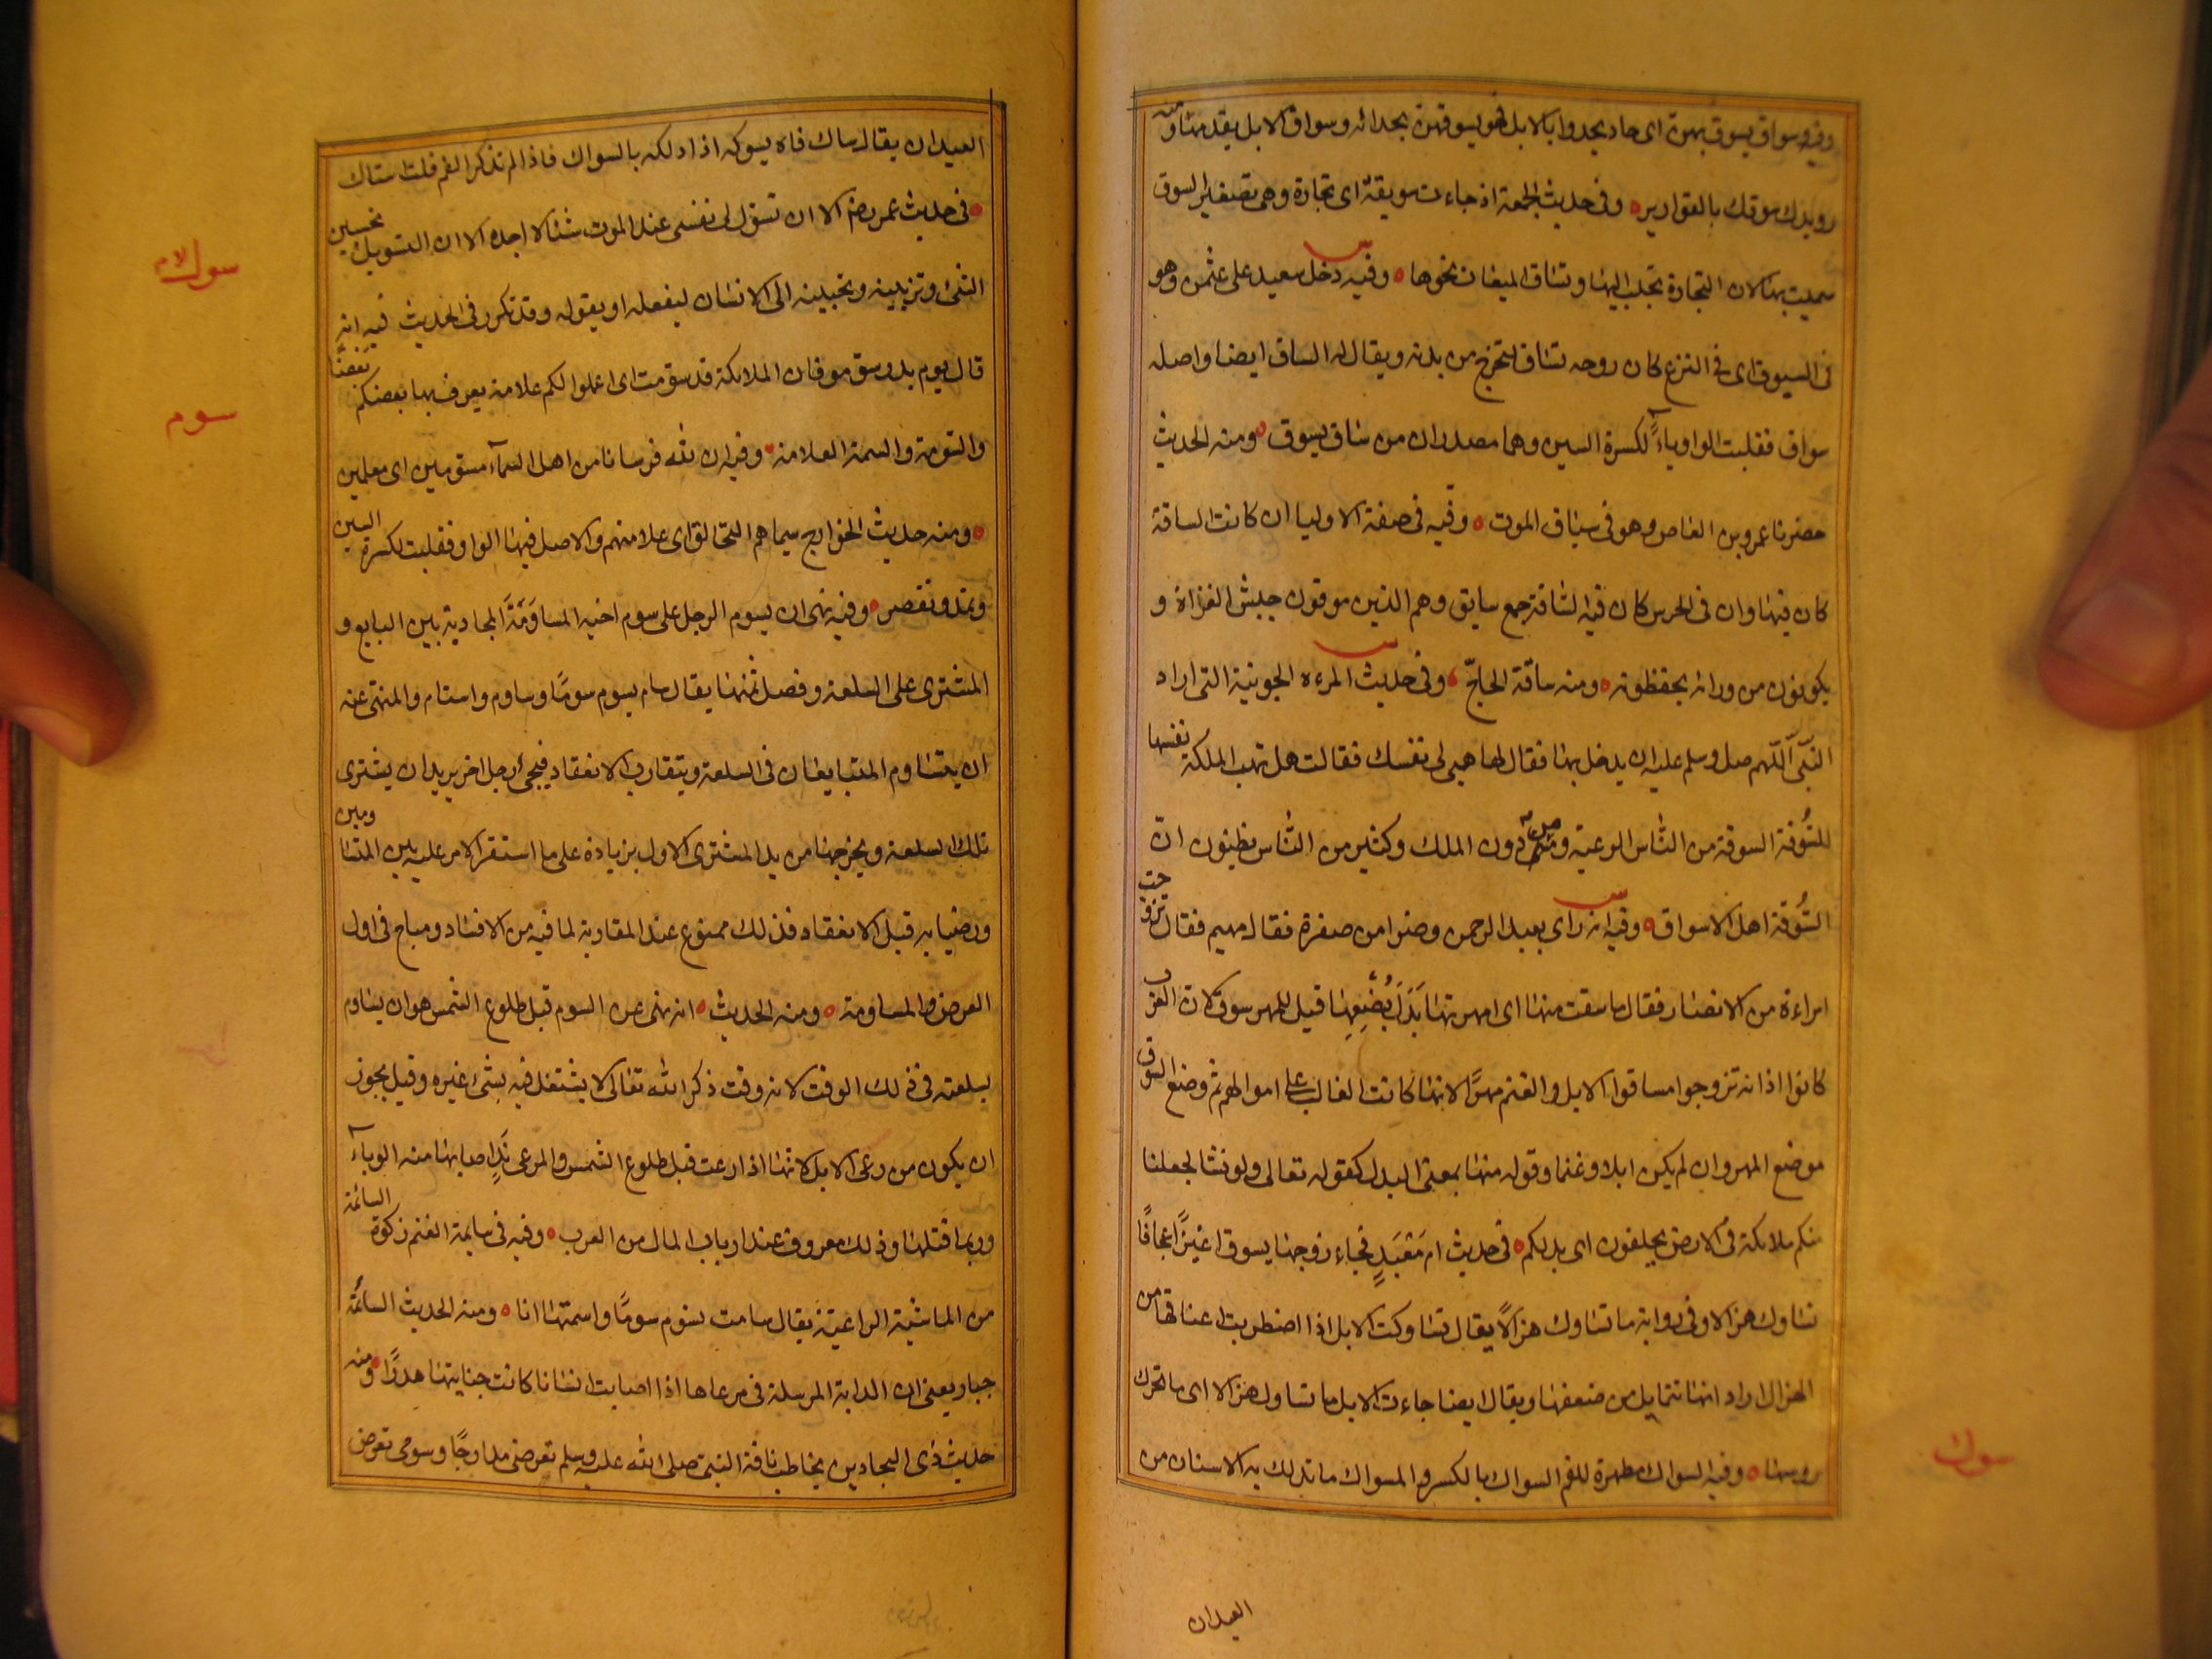 وفيه وسواق يسوق بهن اى حاد يحدوا بالابل فهو يسوقهن بحدائه وسواق الابل يقدمها ومنه
رويدك سوقك بالقوارير ه وفى حديث الجمعة اذ جاءت سويقة اى تجارة وهى تصغير السوق
سميت بها لان التجارة تجلب اليها وتساق المبيعات نحوها ه وفيه دخل سعيد على عثمن وهو
فى السوق اى فى النزع كان روحه تساق لتخرج من بدنه ويقال له السياق ايضا واصله
سواق فقلبت الواو ياءً لكسرة السين وهما مصدران من ساق يسوق ه ومنه الحديث
حضرنا عمرو بن العاص وهو فى سياق الموت ه وفيه فى صفة الاوليا ان كانت الساقة
كان فيها وان فى الحرس كان فيه الساقة جمع سايق وهم الذين يسوقون جيش الغزاة و
يكونون من ورائه يحفظونه ه ومنه ساقة الحاجّ ه وفى حديث المرءة الجونية التى اراد
النبى اللهم صل وسلم عليه ان يدخل بها فقال لها هبى لى نفسك فقالت هل تهب الملكة نفسها
للسُّوقة السوقة من الناس الرعية ومن دون الملك وكثير من الناس يظنون ان
السُّوقة اهل الاسواق ه وفيه انه راى بعبد الرحمن وضرا من صفرة فقال مهيم فقال تزوجت
امراءة من الانصار فقال ما سقت منها اى امهرتها بَدَلَ بُضْعِها قيل للمهر سوق لان العرب
كانوا اذا تزوجوا ساقوا الابل والغنم مهرًا لانها كانت الغالب على اموالهم ثم وضع السوق
موضع المهر وان لم يكن ابلا وغنما وقوله منها بمعنى البدل كقوله تعالى ولو نشا لجعلنا
منكم ملائكة فى الارض يخلفون اى بدلكم ه فى حديث ام مَعْبَدٍ فجاء زوجها يسوق اعنزًا عجافًا
تساوك هزالا وفى رواية ما تساوك هزالاً يقال تساوكت الابل اذا اضطربت اعناقها من
الهزال اراد انها تتمايل من ضعفها ويقال ايضا جاءت الابل ما تساوك هزالا اى ما تحرك
روسها ه وفيه السواك مطهرة للفم السواك بالكسر والمسواك ما تدلك به الاسنان من
سوك
العيدان
العيدان يقال ساك فاه يسوكه اذا دلكه بالسواك فاذا لم تذكر الفم قلت استاك
ه فى حديث عمر رضه الا ان تسول لى نفسى عند الموت شيئا لا اجده الان التسويل تحسين
الشئ وتزيينه وتحبيبه الى الانسان ليفعله او يقوله وقد تكرر فى الحديث فيه انه
قال يوم بدر سوموا فان الملائكة قد سومت اى اعملوا لكم علامة يعرف بها بعضكم بعضًا
والسومة والسمة العلامة ه وفيه ان لله فرسانا من اهل السمآء مسومين اى معلمين
ه ومنه حديث الخوارج سيماهم التحالق اى علامتهم والاصل فيها الواو فقلبت لكسرة السين
وتمد وتقصر ه وفيه نهى ان يسوم الرجل على سوم اخيه المساوَمَةُ المجاذبة بين البايع و
المشترى على السلعة وفصل ثمنها يقال سام يسوم سومًا وساوم واستام والمنهى عنه
ان يتساوم المتبايعان فى السلعة ويتقارب الانعقاد فيجئ رجل اخر يريد ان يشترى
تلك السلعة ويخرجها من يد المشترى الاول بزيادة على ما استقر الامر عليه بين المتساومين
ورضيا به قبل الانعقاد فذلك ممنوع عند المقاربة لما فيه من الافساد ومباح فى اول
العرض والمساومة ه ومنه الحديث ه انه نهى عن السوم قبل طلوع الشمس هو ان يساوم
بسلعته فى ذلك الوقت لانه وقت ذكر الله تعالى لا يشتغل فيه بشئ غيره وقيل يجوز
ان يكون من رعى الابل لانها اذا رعت قبل طلوع الشمس والمرعى نَدٍ اصابها منه الوبآء
وربما قتلها وذلك معروف عند ارباب المال من العرب ه وفيه فى سايمة الغنم زكوة السائمة
من الماشية الراعية يقال سامت تسوم سومًا واسمتها انا ه ومنه الحديث السائمة
جبار يعنى ان الدابة المرسلة فى مرعاها اذا اصابت انسانا كانت جنايتها هدرًا ه ومنه
حديث ذى البجادين يخاطب ناقة النبى صلى الله عليه وسلم تعرضى مدارجًا وسومى تعرض
سول
سوم